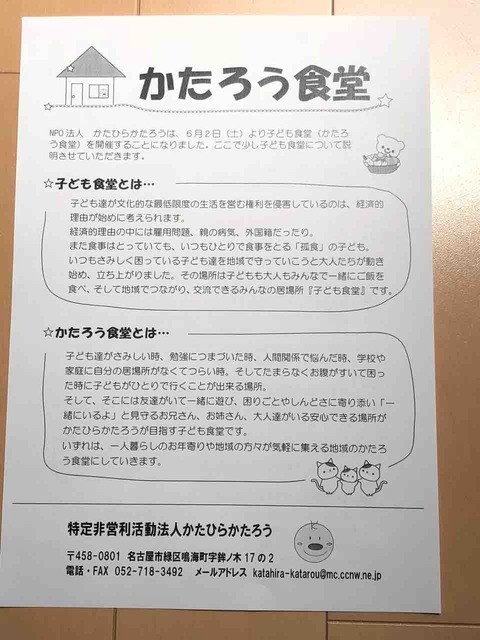 かたろう食堂
NPO法人 かたひらかたろうは、6月2日(土)より子ども食堂(かたろ
う食堂)を開催することになりました。ここで少し子ども食堂について説
明させていただきます。
☆子ども食堂とは…
子ども達が文化的な最低限度の生活を営む権利を侵害しているのは、経済的
理由が始めに考えられます。
経済的理由の中には雇用問題、親の病気、外国籍だったり。
また食事はとっていても、いつもひとりで食事をとる「孤食」の子ども。
いつもさみしく困っている子ども達を地域で守っていこうと大人たちが動き
始め、立ち上がりました。その場所は子どもも大人もみんなで一緒にご飯を
食べ、そして地域でつながり、交流できるみんなの居場所『子ども食堂』です。
☆かたろう食堂とは…
子ども達がさみしい時、勉強につまづいた時、人間関係で悩んだ時、学校や
家庭に自分の居場所がなくてつらい時。そしてたまらなくお腹がすいて困っ
た時に子どもがひとりで行くことが出来る場所。
そして、そこには友達がいて一緒に遊び、困りごとやしんどさに寄り添い「一
緒にいるよ」と見守るお兄さん、お姉さん、大人達がいる安心できる場所が
かたひらかたろうが目指す子ども食堂です。
いずれは、一人暮らしのお年寄りや地域の方々が気軽に集える地域のかたろ
う食堂にしていきます。
特定非営利活動法人かたひらかたろう
〒458-0801 名古屋市緑区鳴海町字鉾ノ木17の2
電話・FAX 052-718-3492 メールアドレス katahira-katarou@mc.ccnw.ne.jp